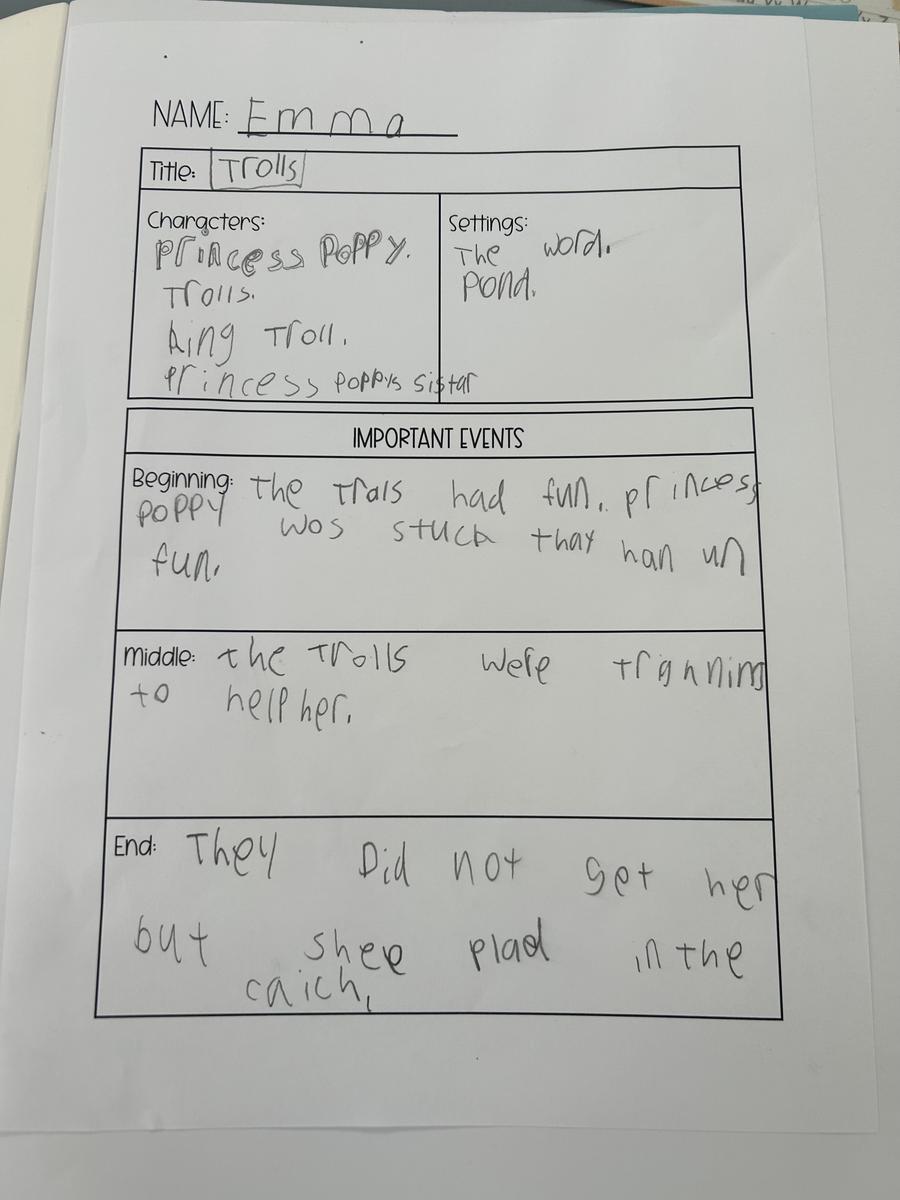 NAME: Emma
Title: Trolls
Characters:
Princess Poppy.
Trolls.
king Troll.
Princess poppys sistar
Settings:
The word.
Pond.
IMPORTANT EVENTS
Beginning: the Trals had fun. princess
poppy wos stuck thay han un
fun.
Middle: the Trolls were tranning
to help her.
End: They Did not get her
but shee plad in the
caich.